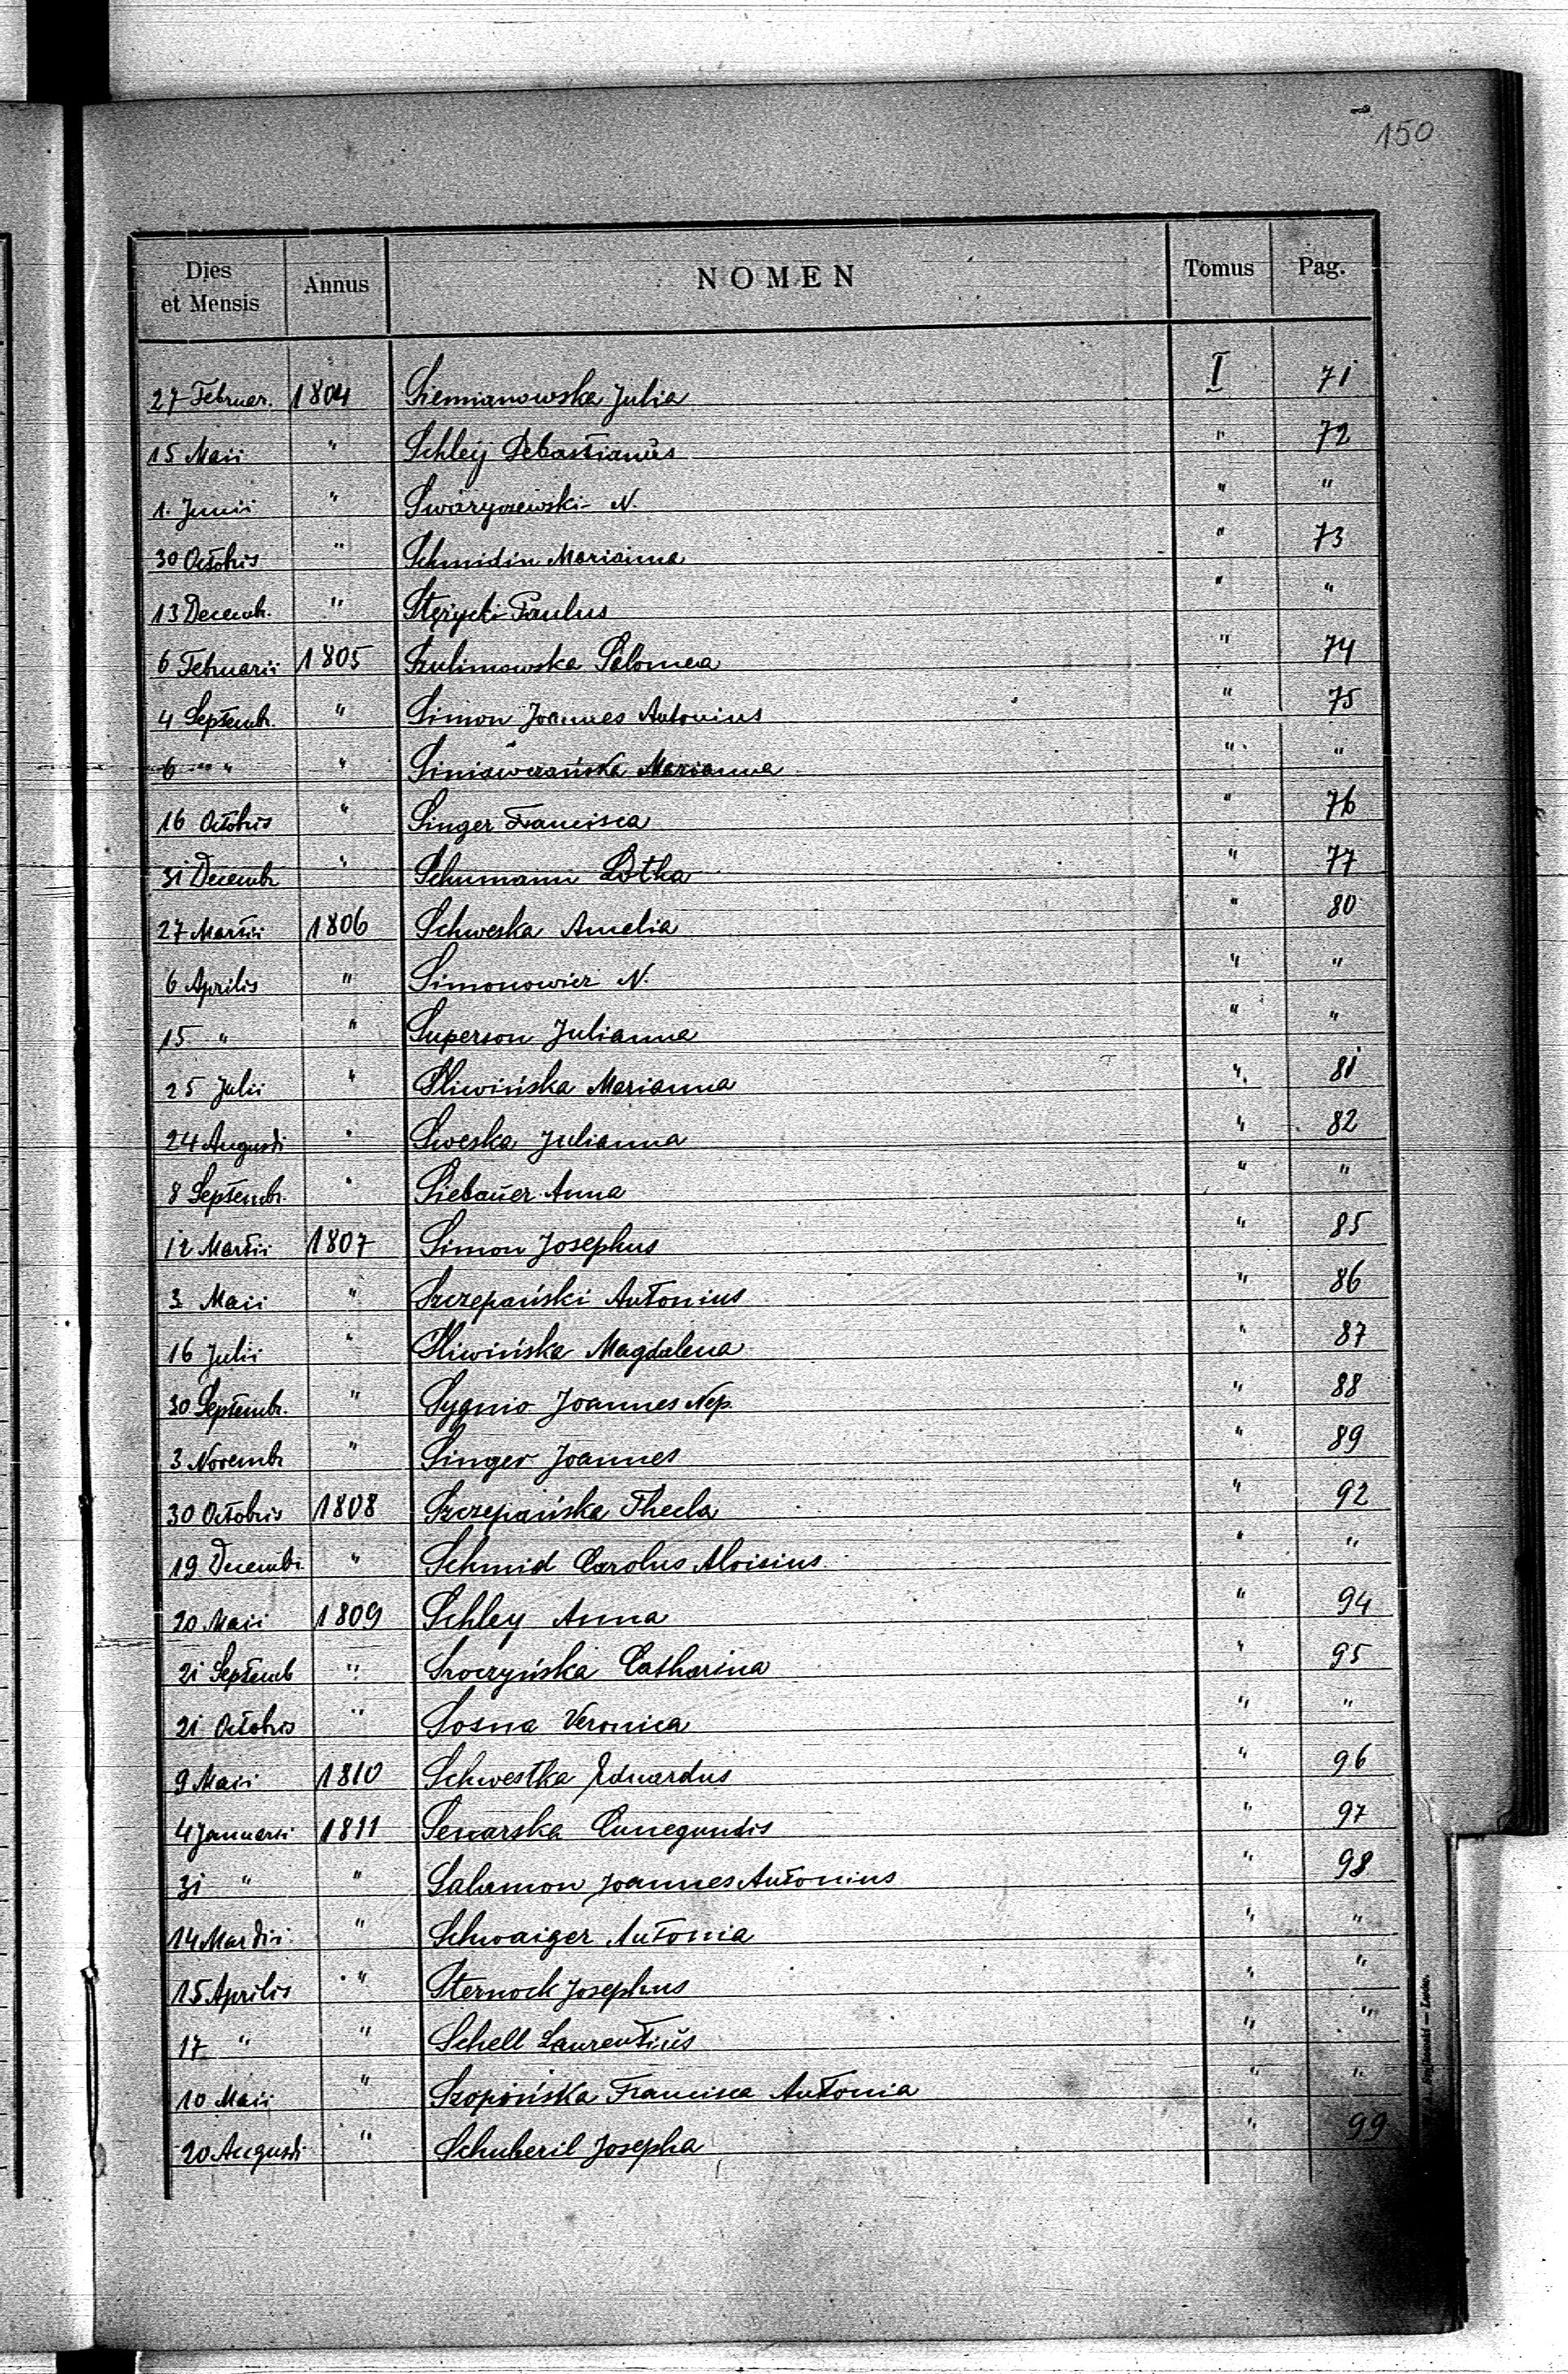 150
Dies et Mensis Annus NOMEN Tomus Pag.
27 Februar. 1804 Siemianowska Julia I 71
15 Maii " Schleÿ Sebastianus " 72
1. Junii " Swaryczewski N. " "
30 Octobris " Schmidin Marianna " 73
13 Decemb. " Stężycki Paulus " "
6 Februarii 1805 Szulimowska Salomea " 74
4 Septemb. " Simon Joannes Antonius " 75
6 " " Marianna " "
16 Octobris " Singer Francisca " 76
31 Decembr " Schumann " 77
27 Martii 1806 Schweska Amelia " 80
6 Aprilis " Simonowicz N. " "
15 " " Superson Julianna " "
25 Julii " Śliwińska Marianna " 81
24 Augusti " Sweska Julianna " 82
8 Septembr. " Siebauer Anna " "
12 Martii 1807 Simon Josephus " 85
3 Maii " Szczepański Antonius " 86
16 Julii " Śliwińska Magdalena " 87
30 Septembr. " Sygnio Joannes Nep. " 88
3 Novembr " Singer Joannes " 89
30 Octobris 1808 Szczepańska Thecla " 92
19 Decembr. " Schmid Carolus Aloisius " "
20 Maii 1809 Schley Anna " 94
21 Septemb " Sroczyńska Catharina " 95
21 Octobris " Sosna Veronica " "
9 Maii 1810 Schwestka Eduardus " 96
4 Januarii 1811 Cunegundis " 97
31 " " Salamon Joannes Antonius " 98
14 Martii " Schwaiger Antonia " "
15 Aprilis " Sternock Josephus " "
17 " " Schell Laurentius " "
10 Maii " Szopińska Francisca Antonia " "
20 Augusti " Schuberil Josepha " 99